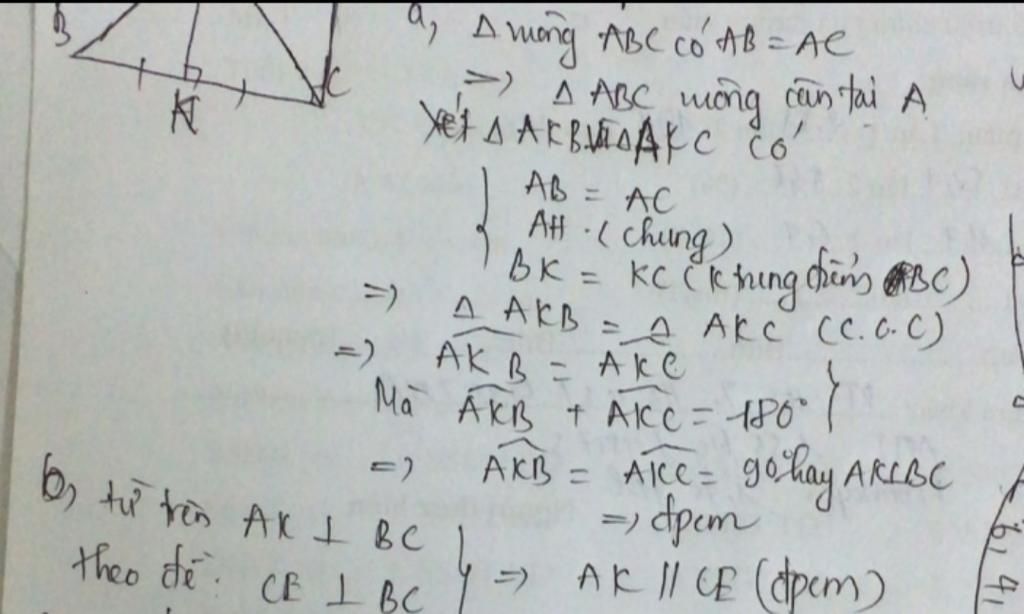 B
K
C
a, Δ vuông ABC có AB = AC
=> Δ ABC vuông cân tại A
Xét Δ AKB và Δ AKC có
AB = AC
AH . (chung)
BK = KC (K trung điểm BC)
=> Δ AKB = Δ AKC (C.C.C)
=> AKB = AKC
Mà AKB + AKC = 180°
=> AKB = AKC = 90° hay AK⊥BC
=> đpcm
b, từ trên AK ⊥ BC
theo đề: CE ⊥ BC
=> AK // CE (đpcm)